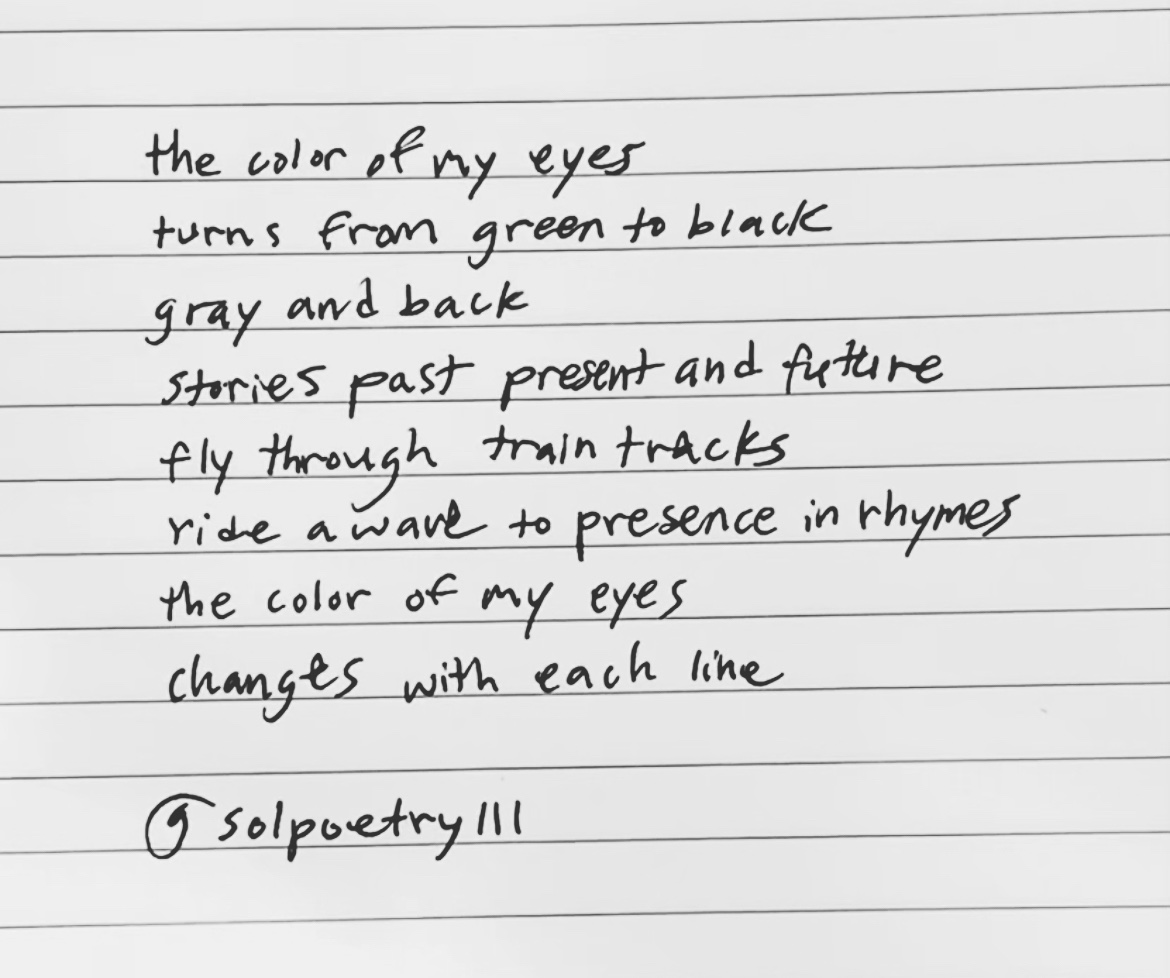 the color of my eyes
turns from green to black
gray and back
stories past present and future
fly through train tracks
ride a wave to presence in rhymes
the color of my eyes
changes with each line
@solpoetry111